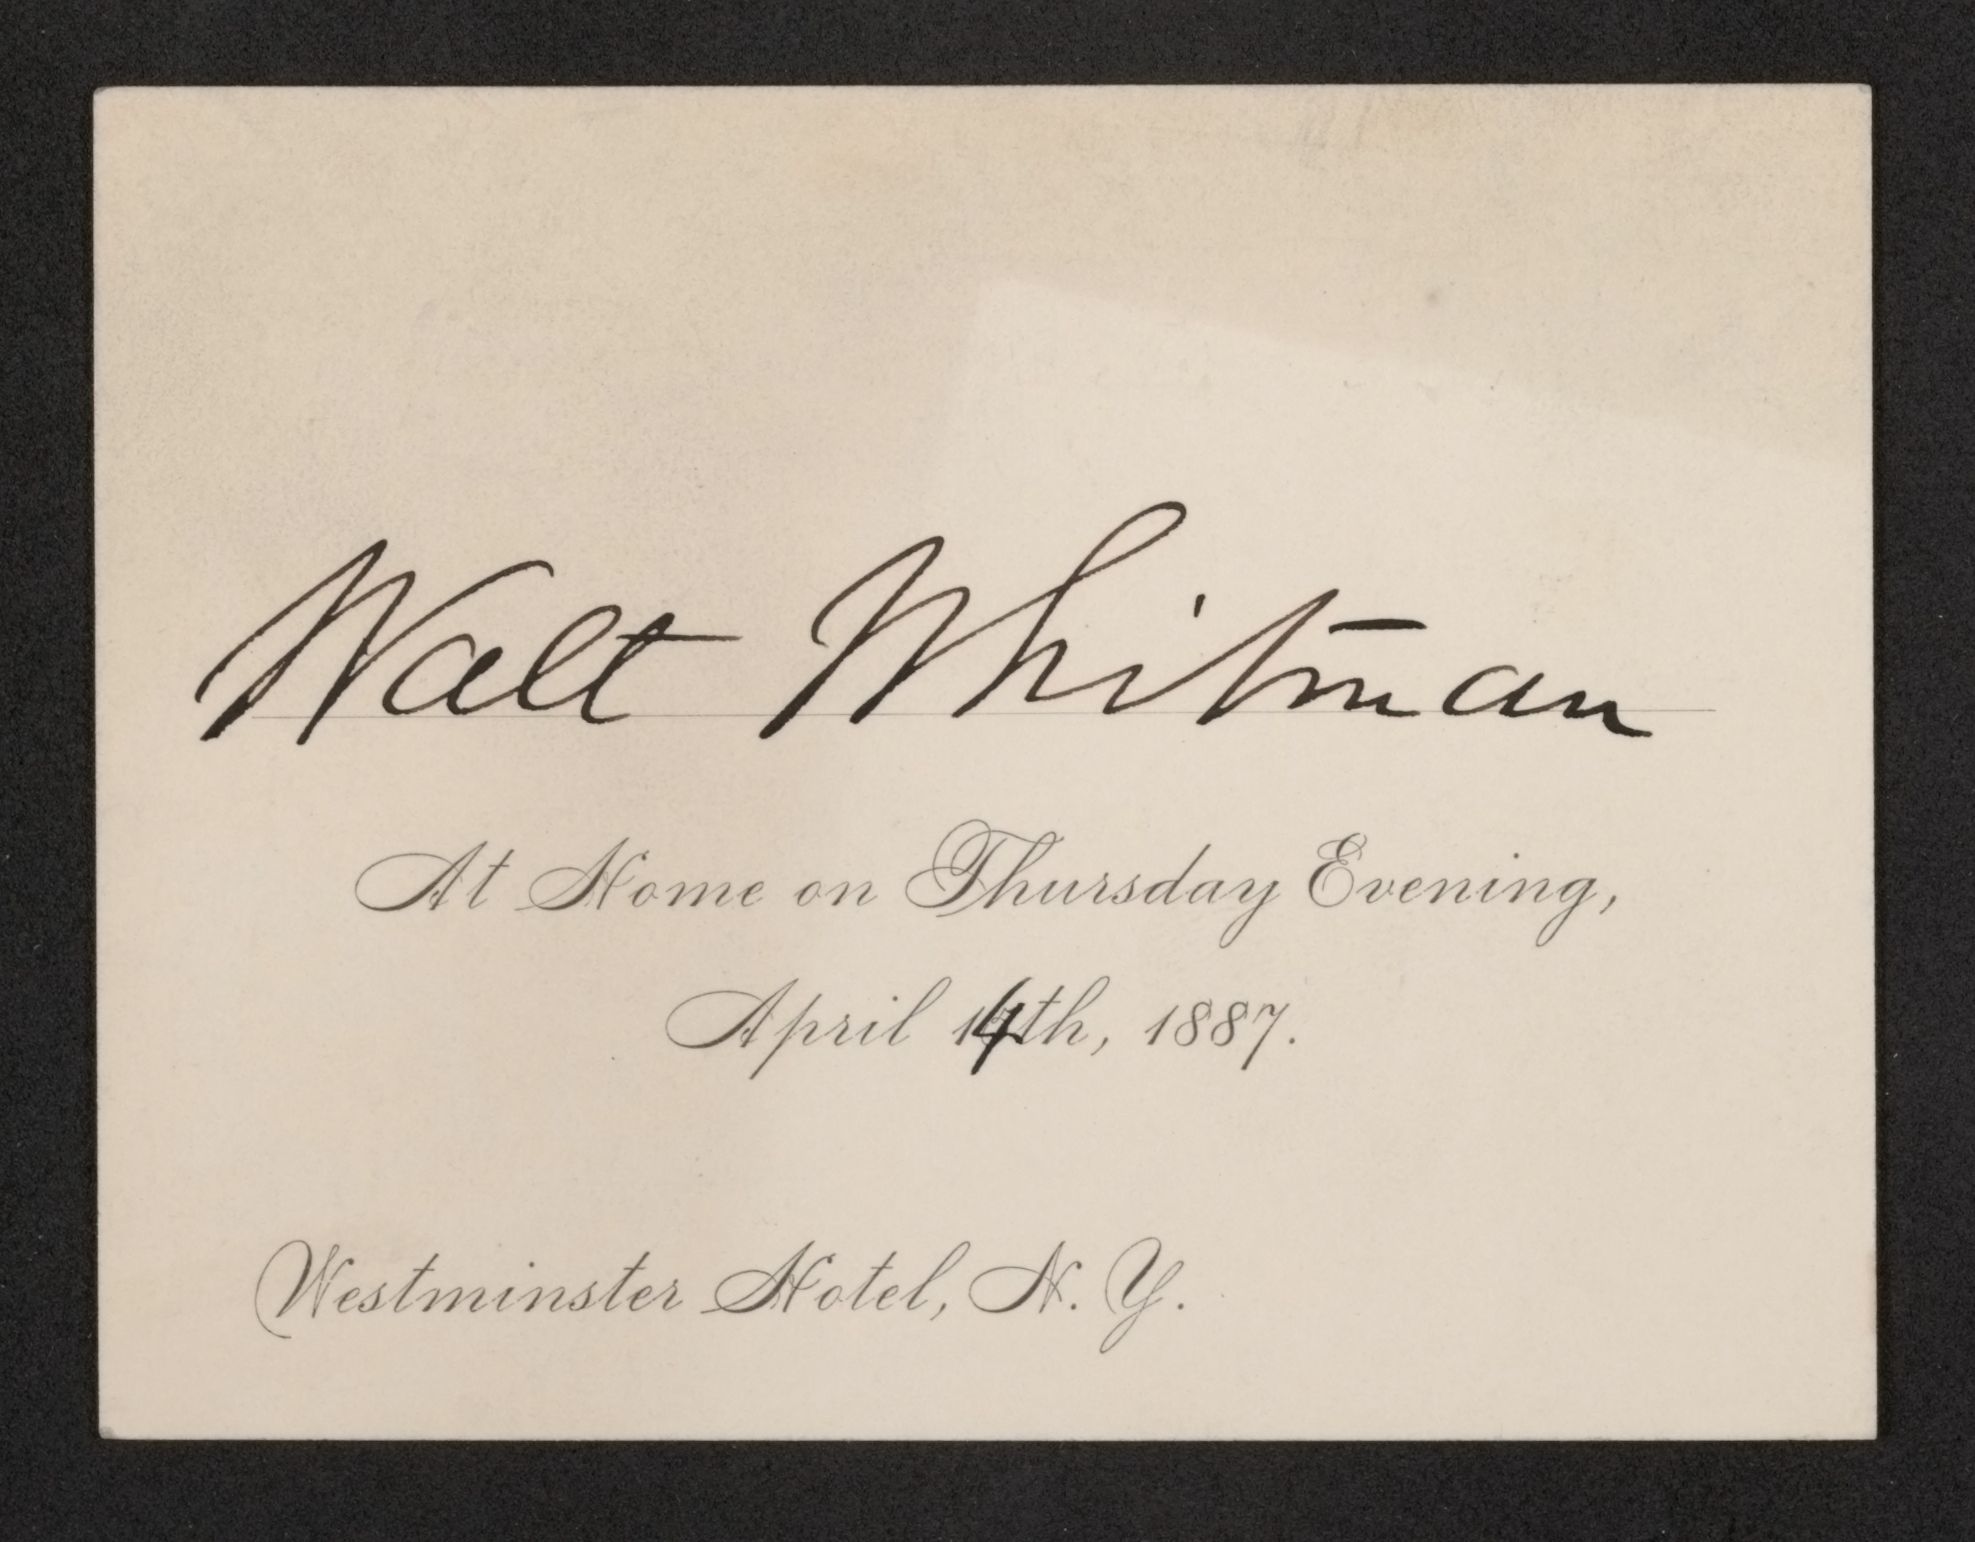 Walt Whitman
At Home on Thursday Evening,
April 14th, 1887.
Westminster Hotel, N. Y.